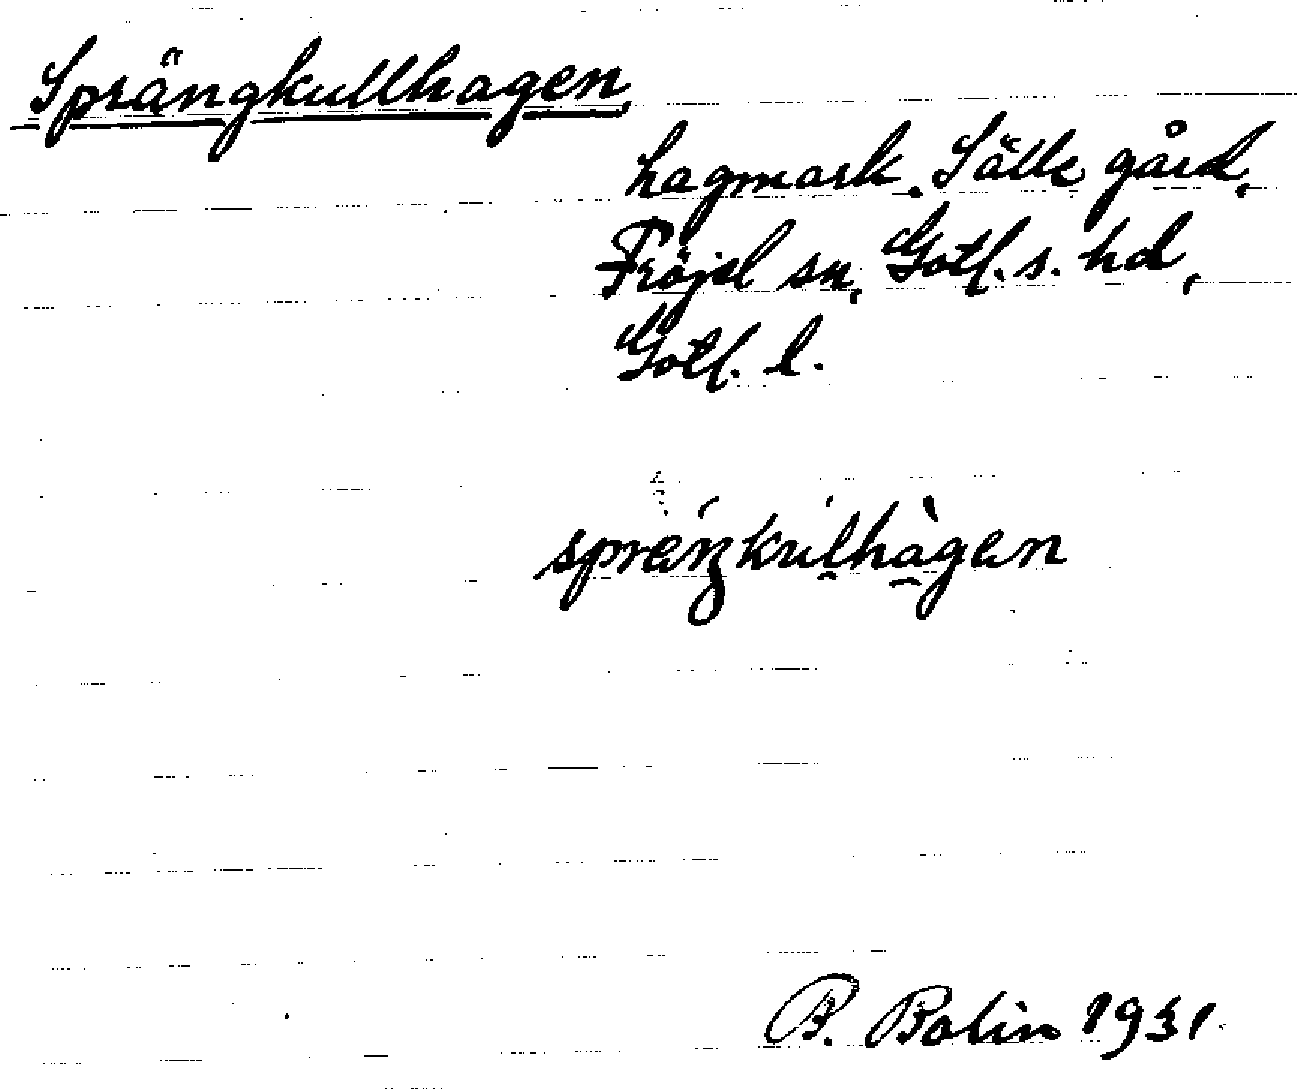 Sprängkullhagen,
hagmark. Sälle gård,
Fröjel sn, Gotl. s. hd,
Gotl. l.
spräŋkulhàgen
B. Bolin 1931.